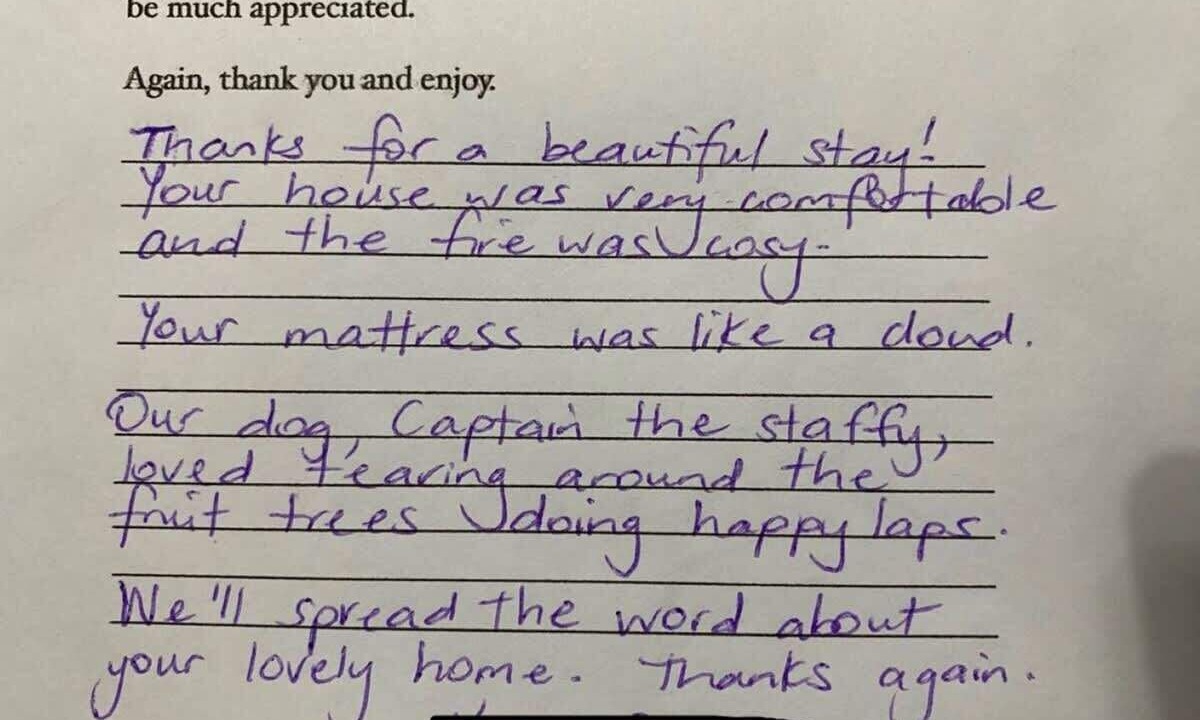 be much appreciated.
Again, thank you and enjoy.
Thanks for a beautiful stay!
Your house was very comfortable
and the fire was cosy.
Your mattress was like a cloud.
Our dog, Captain the staffy,
loved tearing around the
fruit trees doing happy laps.
We'll spread the word about
your lovely home. Thanks again.